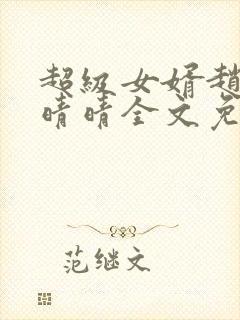 超級女婿趙
晴晴全文免
范继文